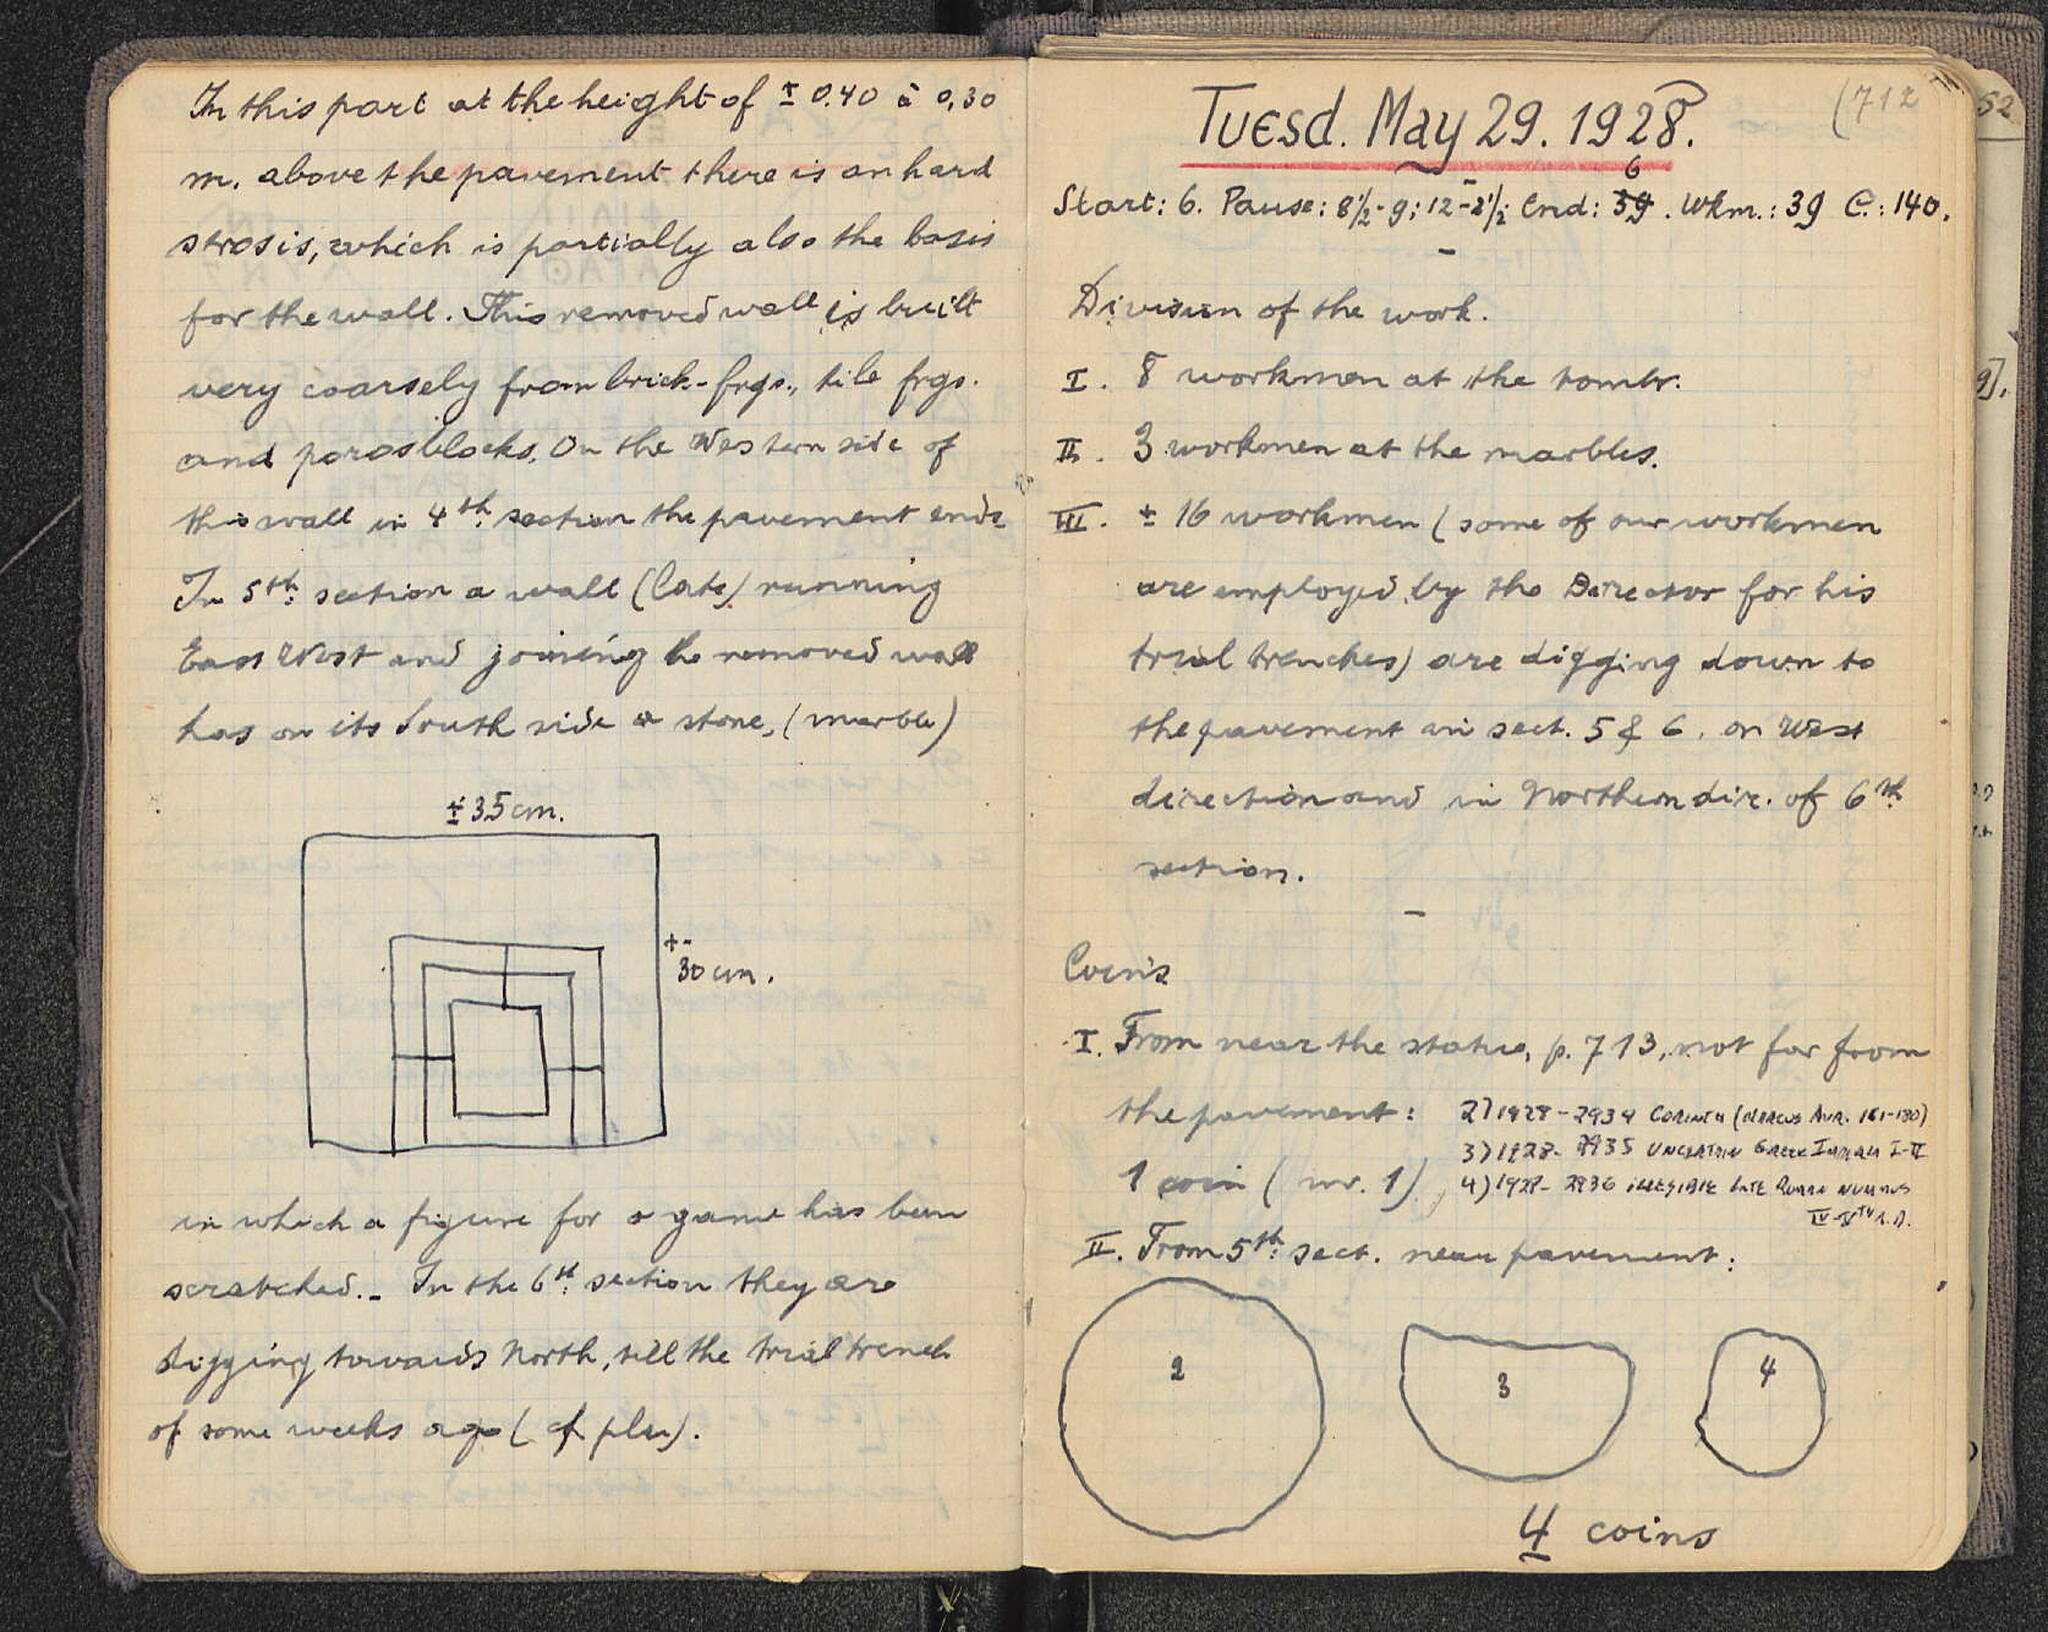 In this part at the height of ± 0.40 à 0,30
m. above the pavement there is an hard
strosis, which is partially also the basis
for the wall. This removed wall is built
very coarsely from brick-frgs., tile frgs.
and porosblocks. On the Western side of
this wall in 4th. section the pavement ends
In 5th. section a wall (late) running
East West and joining the removed wall
has on its South side a stone, (marble)
± 35 cm.
+-
30 cm.
in which a figure for a game has been
scratched._ In the 6th. section they are
digging towards North, till the trial trench
of some weeks ago (cf plan).
(712
52
Tuesd. May 29. 1928.
6
Start: 6. Pause: 8½-9; 12-2½; End: 39. Wkm.: 39 C.: 140.
Division of the work.
I. 8 workmen at the tombr.
II. 3 workmen at the marbles.
III. ± 16 workmen (some of our workmen
are employed by the Director for his
trial trenches) are digging down to
the pavement in sect. 5 & 6. on West
direction and in Northern dir. of 6th.
section.
Coins
I. From near the statue, p. 713, not far from
the pavement:
2) 1928-2934 Corinth (Marcus Aur. 161-180)
3) 1928-2935 Uncertain Greek Imperial I-II
1 coin (nr. 1)
4) 1928-2936 illegible late Roman nummus
IV-Vth A.D.
II. From 5th. sect. near pavement:
2
3
4
4 coins